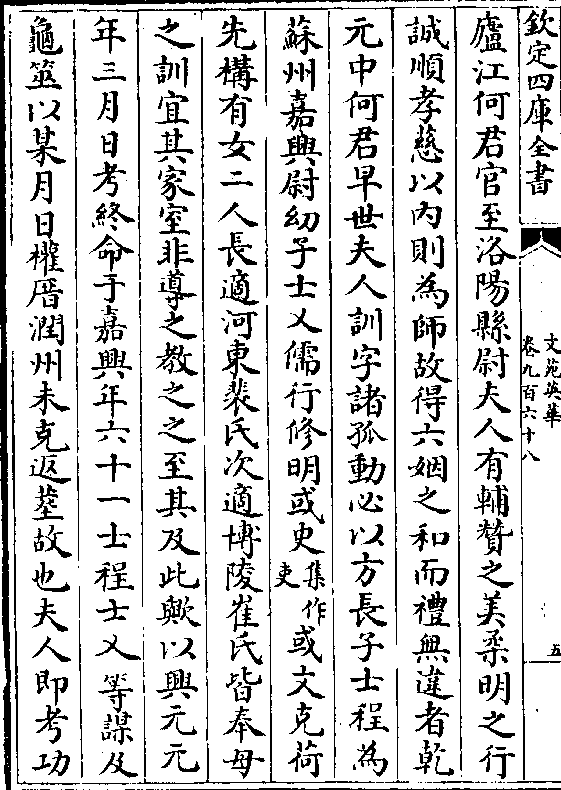 欽定四庫全書
文苑英華
卷九百六十八
五
廬江何君官至洛陽縣尉夫人有輔贊之美柔明之行
誠順孝慈以內則為師故得六姻之和而禮無違者乾
元中何君早世夫人訓字諸孤動必以方長子士程為
蘇州嘉興尉幼子士乂儒行修明或史集作吏或文克荷
先構有女二人長適河東裴氏次適博陵崔氏皆奉母
之訓宜其家室非導之教之之至其及此歟以興元元
年三月日考終命于嘉興年六十一士程士乂等謀及
龜筮以某月日權厝潤州未克返塟故也夫人即考功